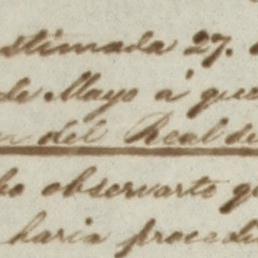 estimada 27.
de Mayo á que
del Real de
observarlo q
haria procedi